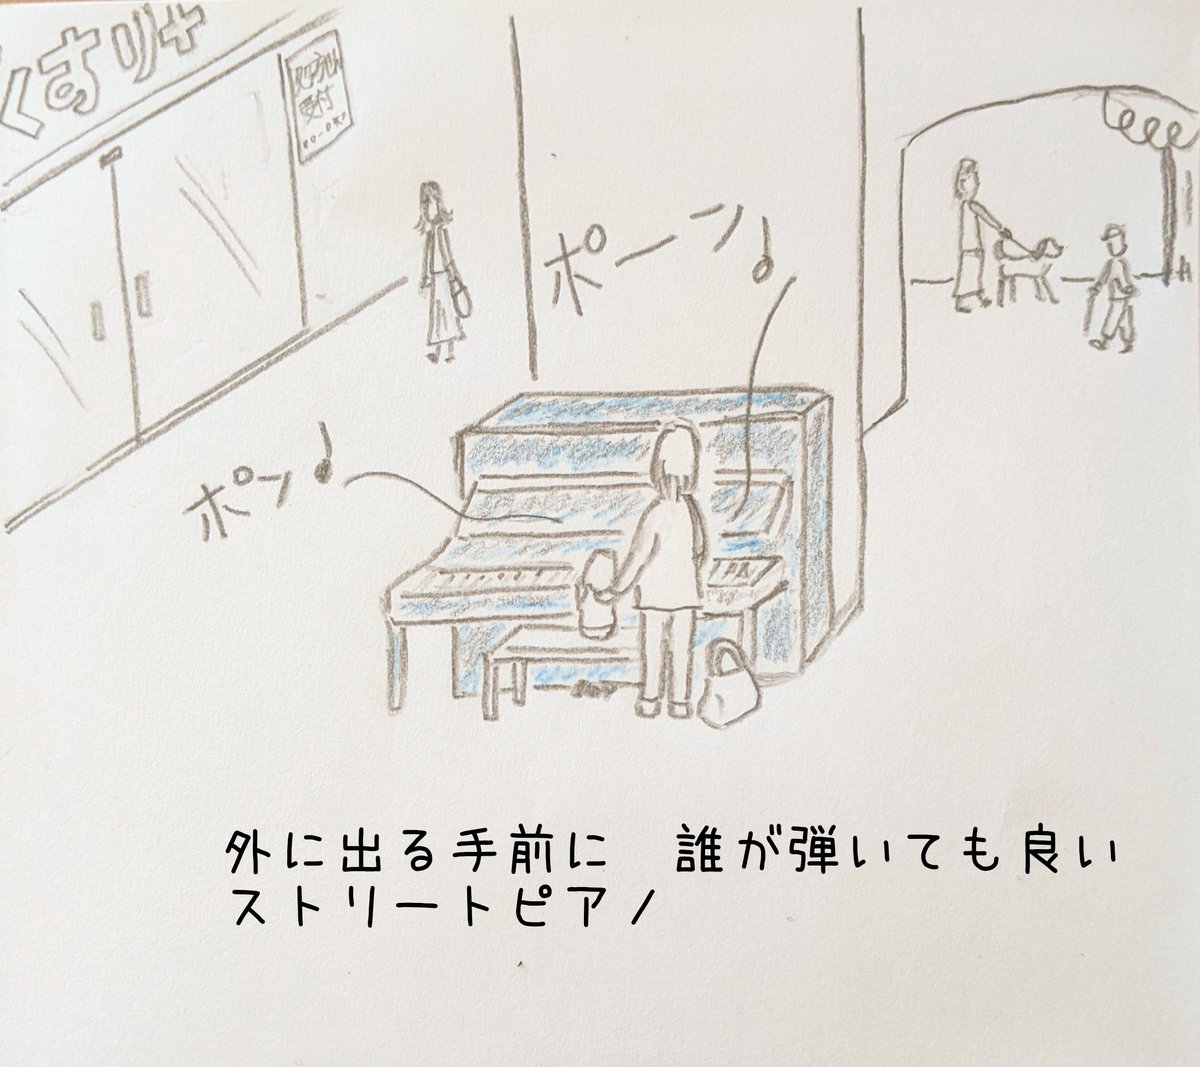 くすりや
処方せん
受付
ポーン♩
ポン♩
外に出る手前に　誰が弾いても良い
ストリートピアノ